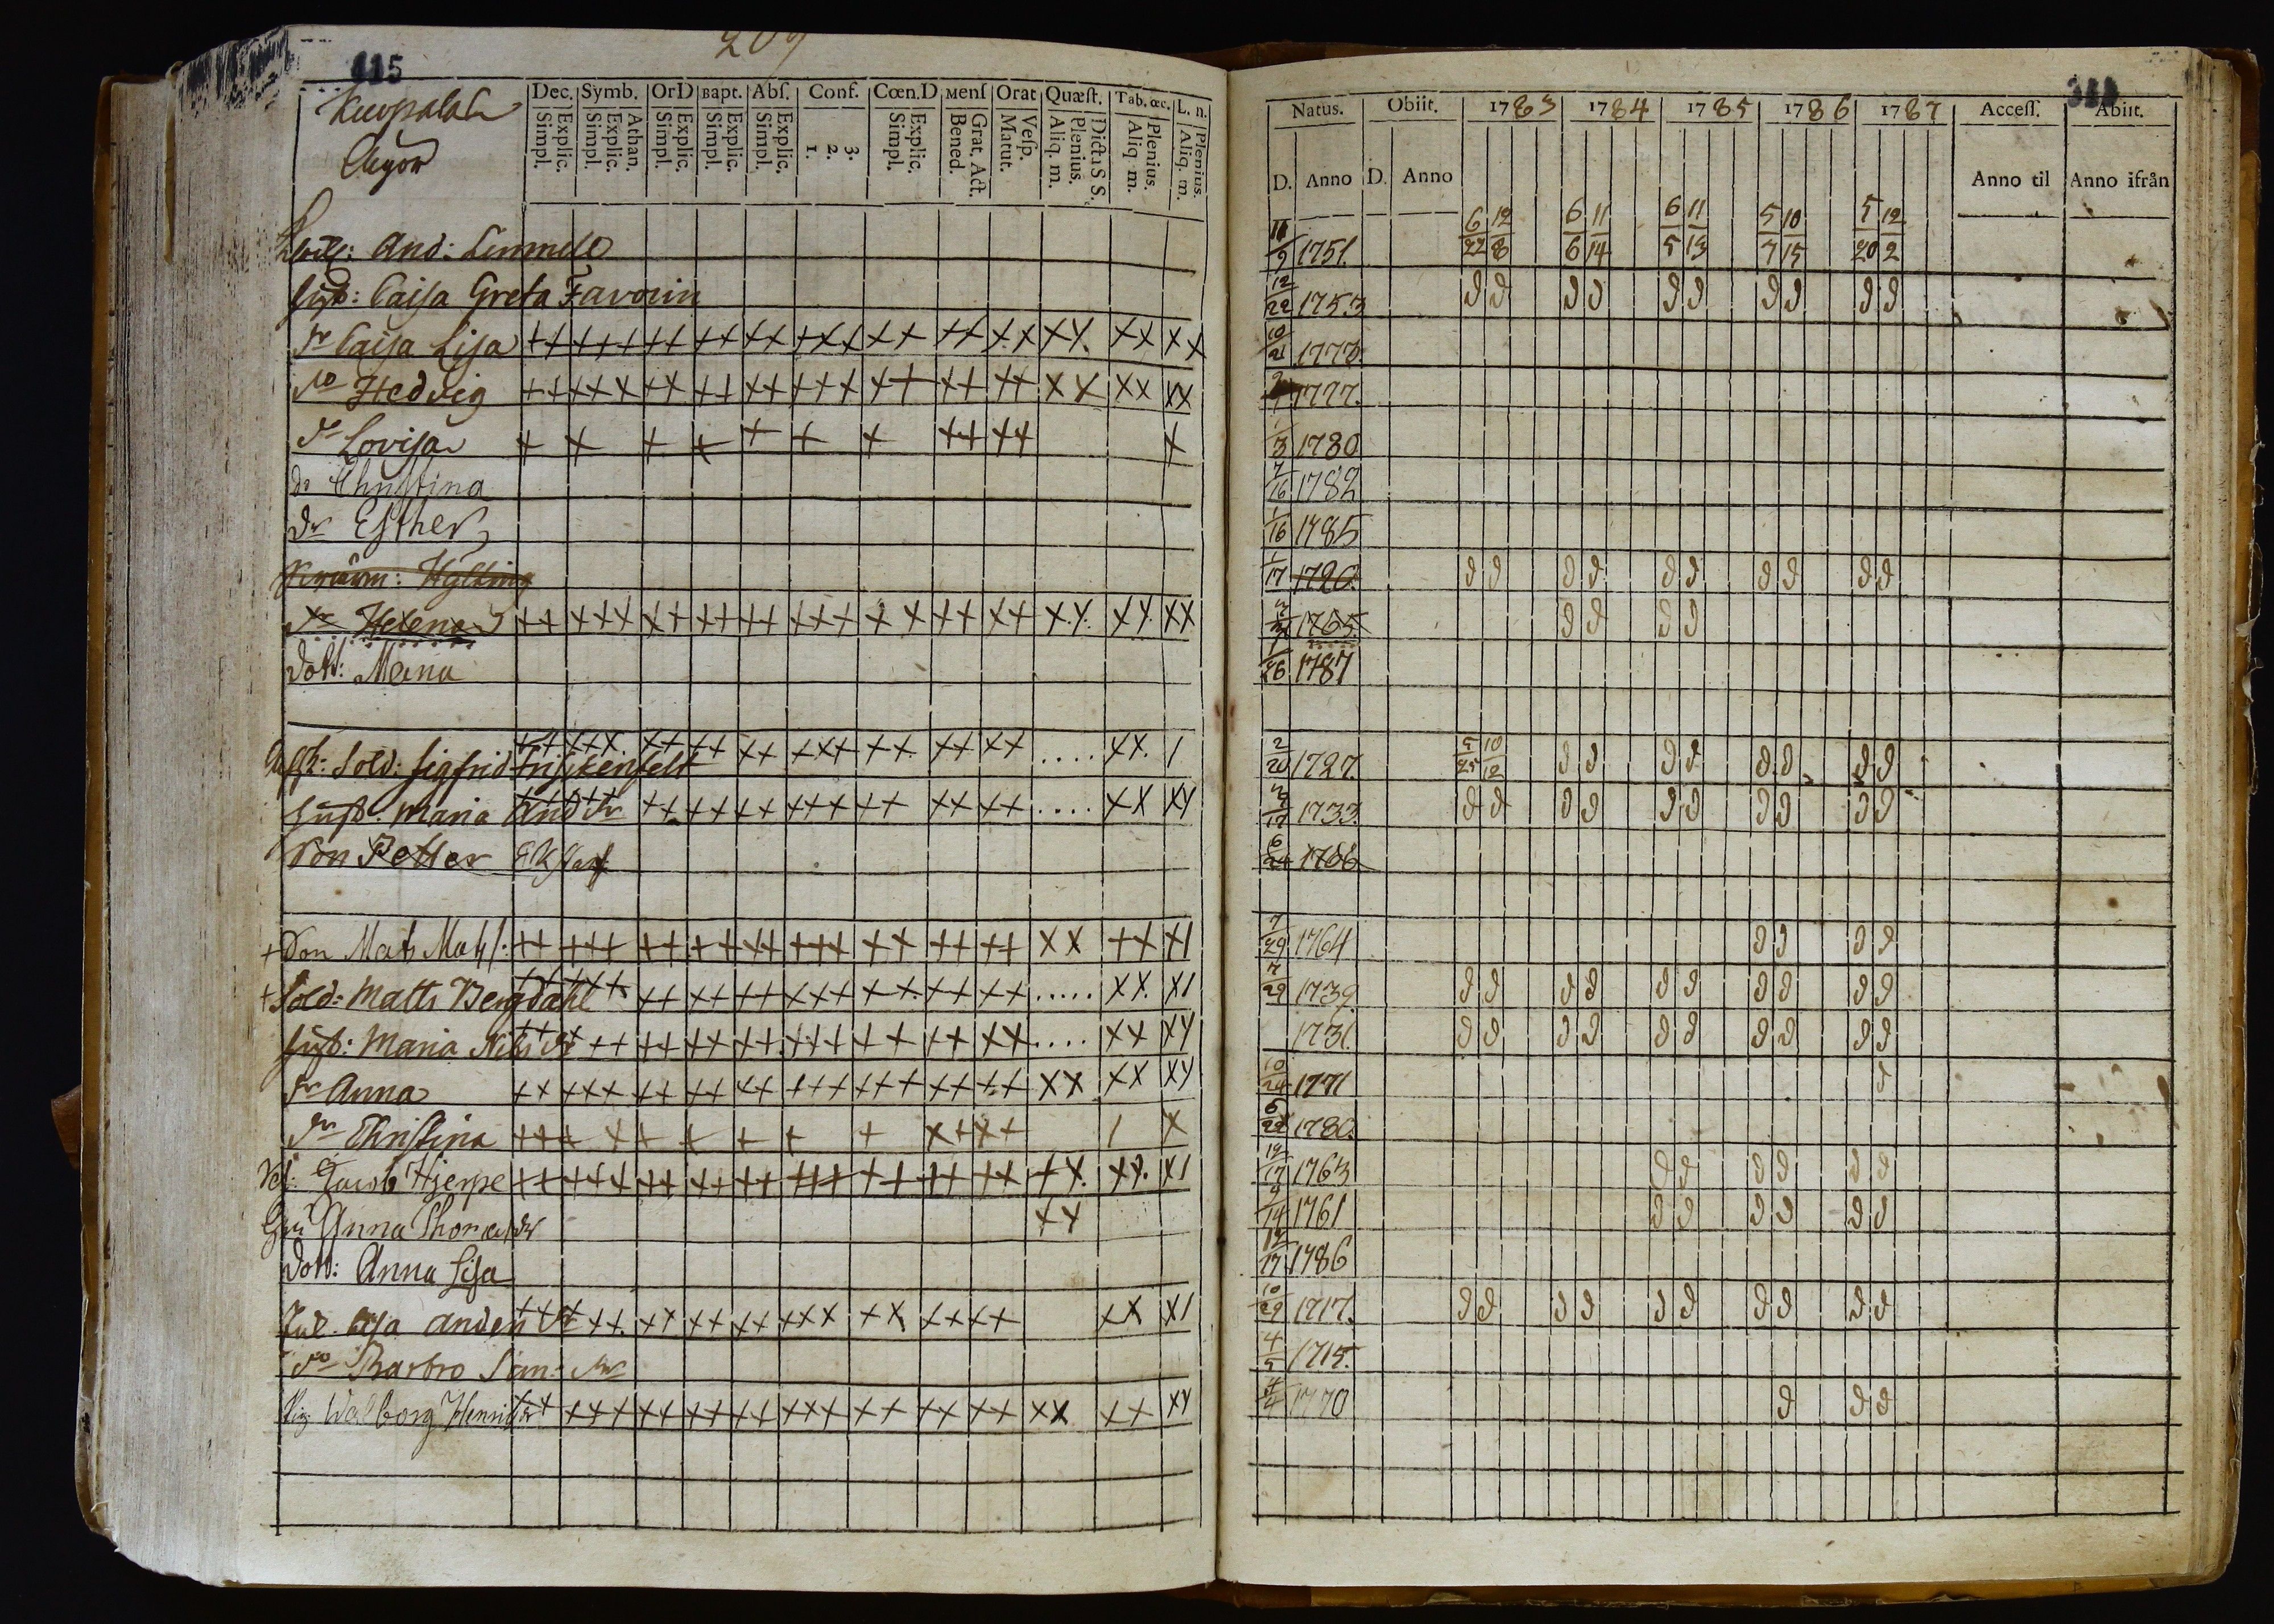 209
115
Dec. Symb. OrD Bapt. Abſ. Conf. Cœn.D Menſ Orat Quæſt. Tab. œc. L. n.
Explic. Simpl. Athan. Explic. Simpl. Explic. Simpl. Explic. Simpl. Explic. Simpl. 1. 2. 3. Explic. Simpl. Grat. Act. Bened. Veſp. Matut. Dictu S S. Plenius. Aliq. m. Plenius. Aliq m. Plenius. Aliq. m.
Natus. Obiit. 1783 1784 1785 1786 1787 Acceſſ. Abiit.
D. Anno D. Anno Anno til Anno ifrån
And: 11/9 1751. 6/22 12/8 6/6 11/14 6/5 11/13 5/7 10/15 5/20 12/2
Caisa Greta Favorin 12/22 1753 ∂ ∂ ∂ ∂ ∂ ∂ ∂ ∂ ∂ ∂
Dr Caisa Lisa ++ +++ ++ ++ ++ +++ ++ ++ ++ XX XX XX 10/21 1773.
Do Hedvig ++ +++ ++ ++ ++ +++ ++ ++ ++ XX XX XX 1777.
Dr Lovisa + + + + + + + ++ ++ + 1/3 1780
Do Christina 7/16 1782
Dr Esther 1/16 1785
1/17 1720. ∂ ∂ ∂ ∂ ∂ ∂ ∂ ∂ ∂ ∂
Dr Helena ++ +++ ++ ++ ++ +++ ++ ++ ++ XX XX XX 1765. ∂ ∂ ∂ ∂
Dott: Maria 1/26 1787
Sold: Sigfrid Friskenfelt ++ +++ ++ ++ ++ +++ ++ ++ ++ .... XX. 1 2/20 1727. 5/25 10/12 ∂ ∂ ∂ ∂ ∂ ∂ ∂ ∂
Hust: Maria And dr ++ +++ ++ ++ ++ +++ ++ ++ ++ .... XX XX 1733. ∂ ∂ ∂ ∂ ∂ ∂ ∂ ∂ ∂ ∂
Son Petter 6/24 1766
+ Son Mats Mats ++ +++ ++ ++ ++ +++ ++ ++ ++ XX ++ X1 7/29 1764 ∂ ∂ ∂ ∂
+ Sold: Matts Bergdahl ++ +++ ++ ++ ++ +++ ++ ++ ++ ..... XX. X1 7/29 1739. ∂ ∂ ∂ ∂ ∂ ∂ ∂ ∂ ∂ ∂
Hust: Maria Nils dr ++ +++ ++ ++ ++ +++ ++ ++ ++ .... XX XX 1731. ∂ ∂ ∂ ∂ ∂ ∂ ∂ ∂ ∂ ∂
Dr Anna ++ +++ ++ ++ ++ +++ ++ ++ ++ XX XX XX 10/24 1771 ∂
Dr Christina ++ ++ + + + + + ++ ++ 1 X 1780.
Jacob Hjerpe ++ +++ ++ ++ ++ +++ ++ ++ ++ +X. XX. X1 12/17 1763 ∂ ∂ ∂ ∂ ∂ ∂
Anna ++ 9/14 1761 ∂ ∂ ∂ ∂ ∂ ∂
Dott: Anna Lisa 12/17 1786
Anders dr ++ +++ ++ ++ ++ +++ ++ ++ ++ XX X1 10/29 1717. ∂ ∂ ∂ ∂ ∂ ∂ ∂ ∂ ∂ ∂
Do Barbro 4/5 1715.
Walborg Henrics dr ++ +++ ++ ++ ++ +++ ++ ++ ++ XX XX XX 1770 ∂ ∂ ∂